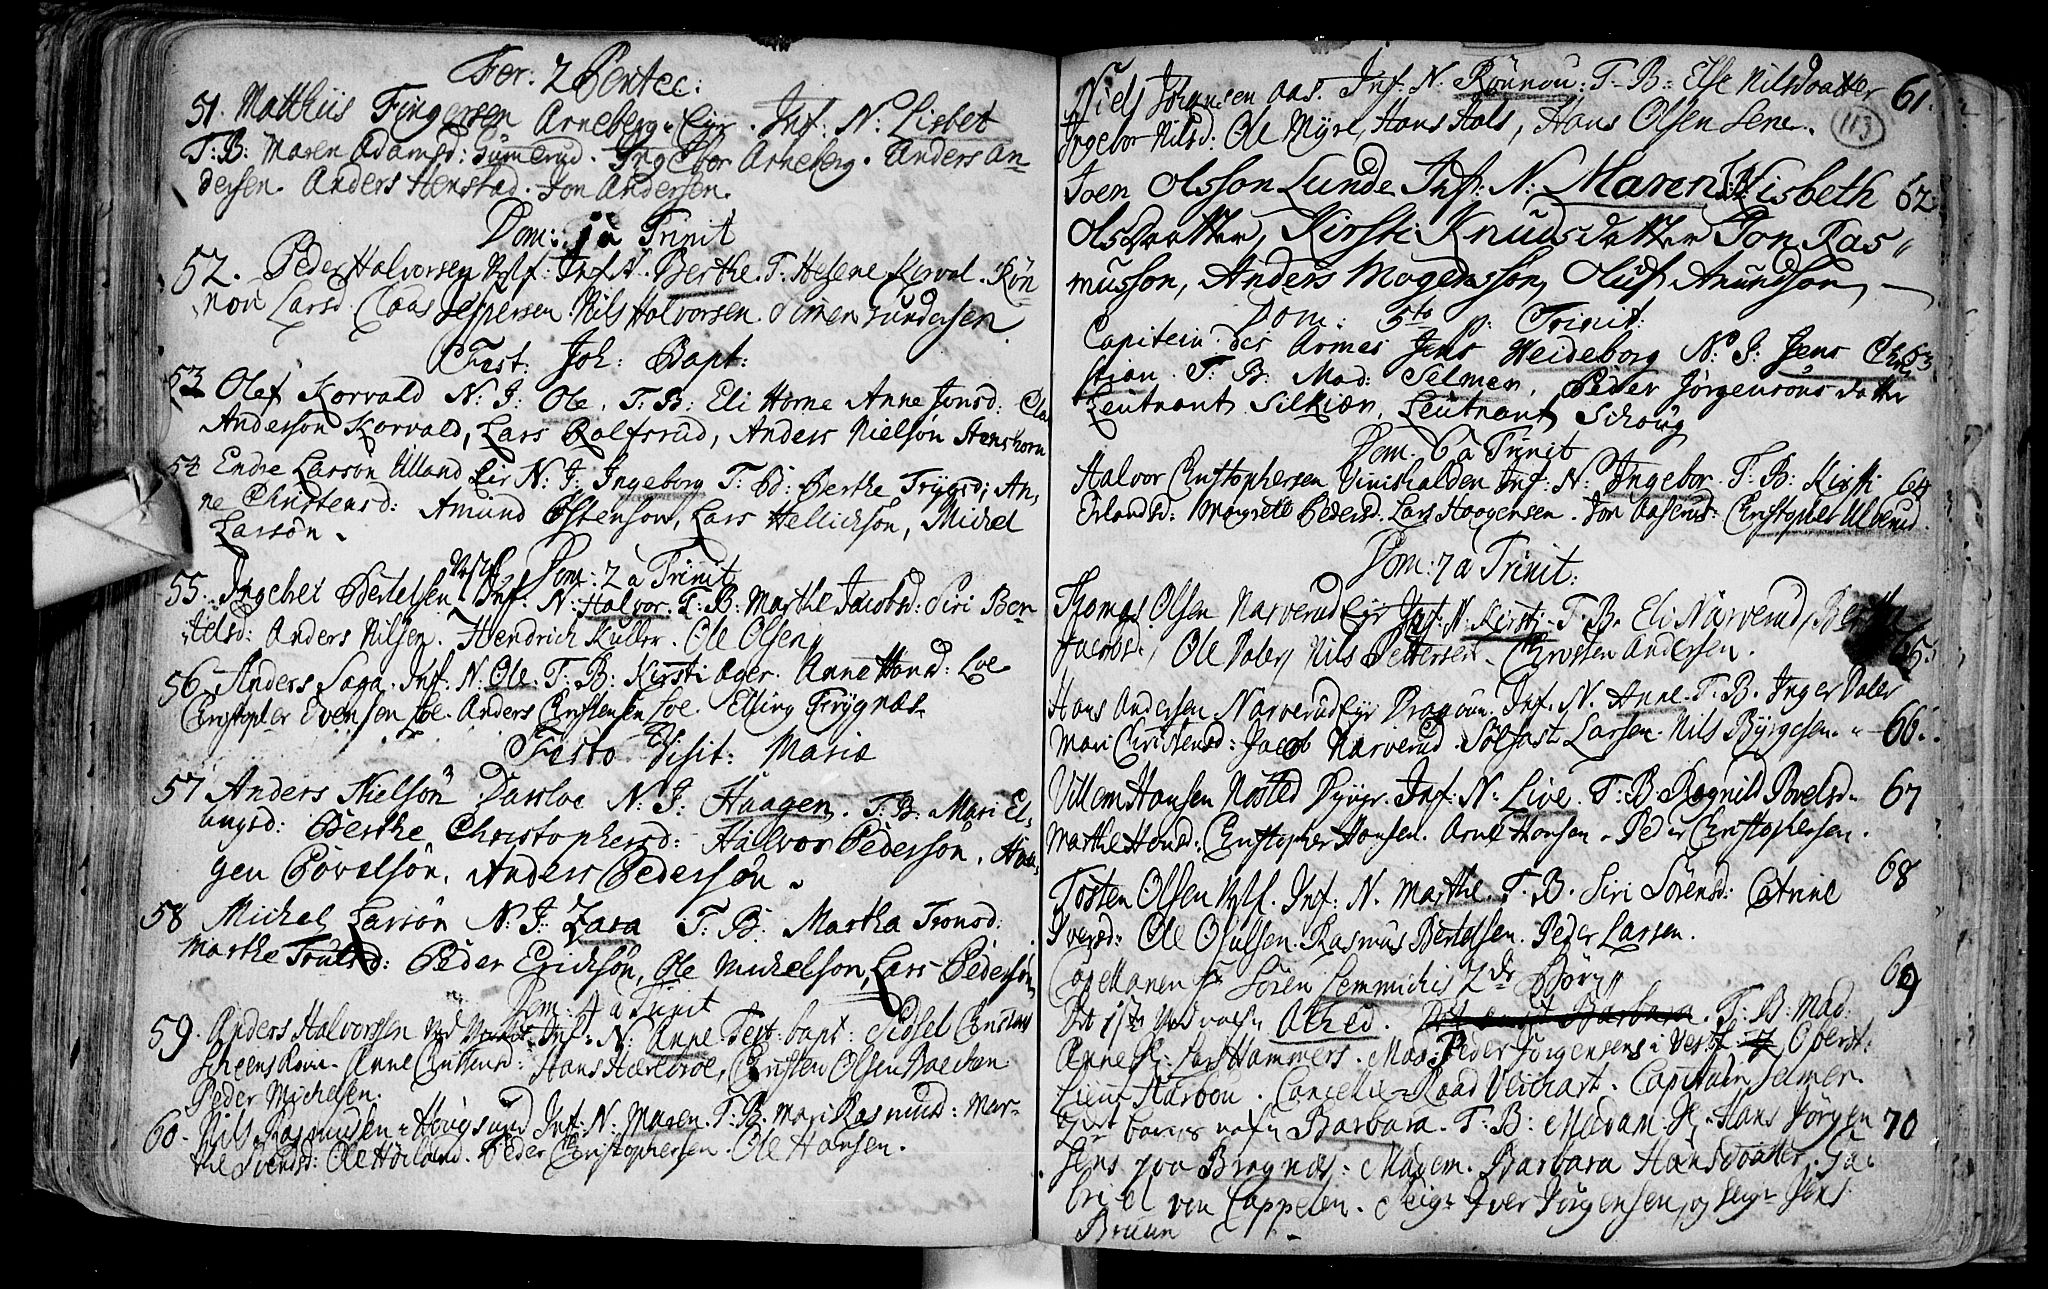 Fer: 2 Pentec:
51. Matthiis Fingersen Arneberg Eyr. Inf: N: Lisbet
T: B: Maren Adamsd: Gumerud. Ingebor Arneberg. Anders An-
dersen. Anders Henstad. Jon Andersen.
Dom: 1 à Trinit
52. Peder Halvorsen Inf. N. Berthe. T. Helene Korval. Rön-
nou Larsd. Claas Jespersen. Nils Halvorsen. Simen Gundersen
Fest: Joh: Bapt:
53 Olef Korvald N: J: Ole. T: B: Eli Horne Anne Jonsd: Ola
Anderson Korvald, Lars Rolfsrud, Anders Nielson Stenshorn
54 Endre Larson Ulland Eir N: J: Ingeborg T: B: Berthe Trÿgsd; An-
ne Christensd: Amund Östenson, Lars Hellickson, Michel
Larson.
Dom: 2 à Trinit
55. Ingebret Bertelsen Inf. N: Halvor. T: B: Marthe Jacobsd: Siri Ber-
telsd: Anders Nilsen. Hendrich Kuller. Ole Olsen
56. Anders Saga. Inf. N. Ole. T: B: Kirsti Ager. Anne Hansd: Loe
Christopher Evensen Loe. Anders Christensen Loe. Elling Frygnæs.
Festo Visit: Mariæ
57 Anders Nielson Dassloe N: J: Haagen. T: B: Mari El-
lingsd: Berthe Christophersd: Halvor Pederson, Haa-
gen Povelson, Anders Pederson.
58 Michel Larson N: J: Zara T: B: Martha Tronsd:
Marthe Trulsd: Peder Erickson, Ole Michelson, Lars Pederson
Dom: 4 à Trinit
59. Anders Halvorsen Inf: N: Anne Fest: bapt: Sidsel
Anne Hans Christen Olsen
Peder Michelsen.
60. Nils Rasmusen Hougsund Inf: N: Maren. T: B: Mari Rasmusd: Mar-
the Svendsd: Ole Peder Christophersen. Ole Hansen.
Niels Jörgensen Aas. Inf: N: Rönnou: T: B: Else Nilsdaatter 61.
Ingebor Nilsd: Ole Myre, Hans Hals, Hans Olsen Sene. 113
Joen Olsson Lunde Inf: N: Maren T: B: Lisbeth 62
Olsdaatter, Kirsti Knudsdatter Jon Ras-
musson, Anders Mogensson, Oluf Anundson
Dom: 5to p: Trinit:
Capitein des Armes Jens Heideborg N: J: Jens Chri- 63
stian. T: B: Mad: Selmer, Peder Jörgensöns datter
Leutnant Silkiær, Leutnant Schoug
Dom. 6 à Trinit
Halvor Christophersen Vinishalden Inf: N: Ingebor. T: B: Kirsti 64
Erlandsd: Margrete Pedersd. Lars Haagensen. Jon Aaserud: Christopher Ulverud.
Dom: 7 à Trinit:
Thomas Olsen Narverud Eir Inf: N. Kirsti. T. B. Eli Narverud, Bertha
Jacobsd: Ole Daler, Nils Pettersen. Christen Andersen. 65.
Hans Andersen Narverud Eyr Dragoun. Inf. N. Anne. T. B. Inger Daler
Mari Christensd: Jacob Narverud. Solfast Larsen. Nils Byrgesen. 66.
Villem Hansen Nösted Inf: N: Live. T: B: Ragnild Povelsd. 67
Marthe Hansd: Christopher Hansen. Arne Hansen. Peder Christophersen.
68
Tosten Olsen Inf. N. Marthe. T. B. Siri Sörensd: Catrine
Iversd: Ole Olulsen. Rasmus Bertelsen. Peder Larsen.
Capellanen Hr Sören Lemmichis 2de Börn 69
Det 1ste Aethed. Det andet Barbara. T: B: Mad:
Anne Hr: Lars Hammers. Mad: Peder Jörgensens Oberst-
Lieut Harbou. Cancelie-Raad Capitain Selmer.
Barbara. T: B: Madam Hr. Hans Jörgen- 70
sens paa Bragnæs: Madem. Barbara Hansdaatter. Ga-
briel von Cappelen. Seigr Iver Jörgensen, og Seigr Jens
Bruun